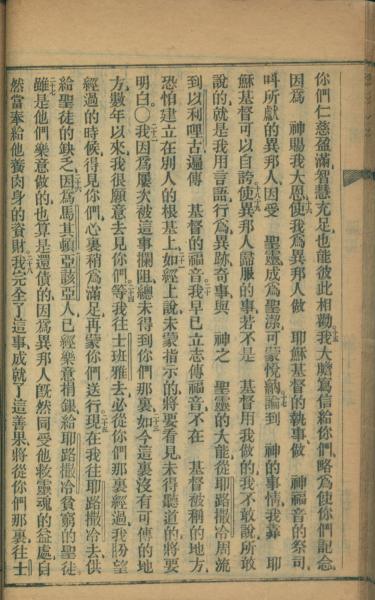 你們仁慈盈滿智慧充足也能彼此相勸十五我大膽寫信給你們略爲使你們記念
因爲　神賜我大恩使我爲異邦人做　耶穌基督的執事做　神福音的祭司
呌所獻的異邦人因受　聖靈成爲聖潔可蒙悅納十七論到　神的事情我靠　耶
穌基督可以自誇十八使異邦人歸服的事若不是　基督用我做的我不敢說所敢
說的就是我用言語行爲異跡奇事與　神之　聖靈的大能從耶路撒冷周流
到以利哩古遍傳　基督的福音二十我早已立志傳福音不在　基督被稱的地方
恐怕建立在別人的根基上如經上說未蒙指示的將要看見未得聽道的將要
明白〇我因爲屢次被這事攔阻總未得到你們那裏如今這裏沒有可傳的地
方數年以來我很願意去見你們二十四等我往士班雅去必從你們那裏經過我盼望
經過的時候得見你們心裏稍爲滿足再蒙你們送行二十五現在我往耶路撒冷去供
給聖徒的缺乏二十六因爲馬其頓亞該亞人已經樂意捐銀給耶路撒冷貧窮的聖徒
二十七雖是他們樂意做的也算是還債的因爲異邦人旣然同受他救靈魂的益處自
然當奉給他養肉身的資財二十八我完全了這事成就了這善果將從你們那裏往士